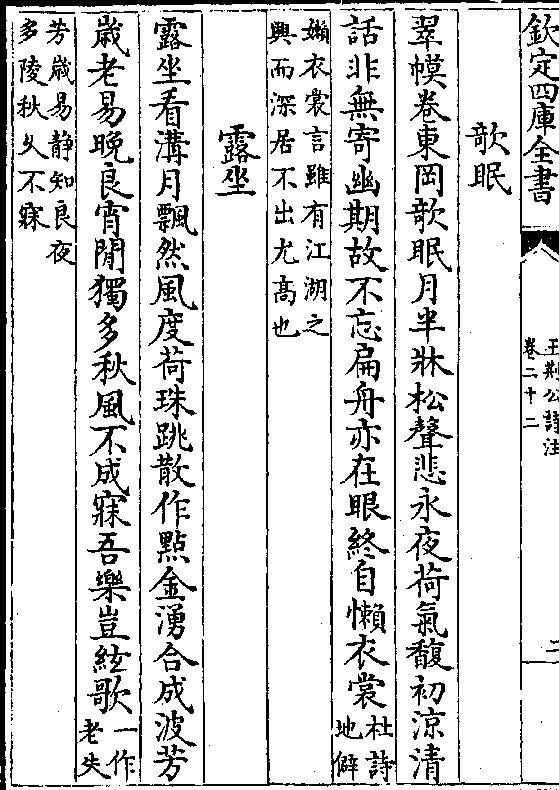 欽定四庫全書
王荊公詩注
卷二十二
二
欹眠
翠幙卷東岡欹眠月半牀松聲悲永夜荷氣馥初涼清
話非無寄幽期故不忘扁舟亦在眼終自懶衣裳
杜詩
地僻
嬾衣裳言雖有江湖之
興而深居不出尤髙也
露坐
露坐看溝月飄然風度荷珠跳散作點金湧合成波芳
歳老易晚良宵閒獨多秋風不成寐吾樂豈絃歌
一作
老失
芳歳易静知良夜
多陵秋久不寐